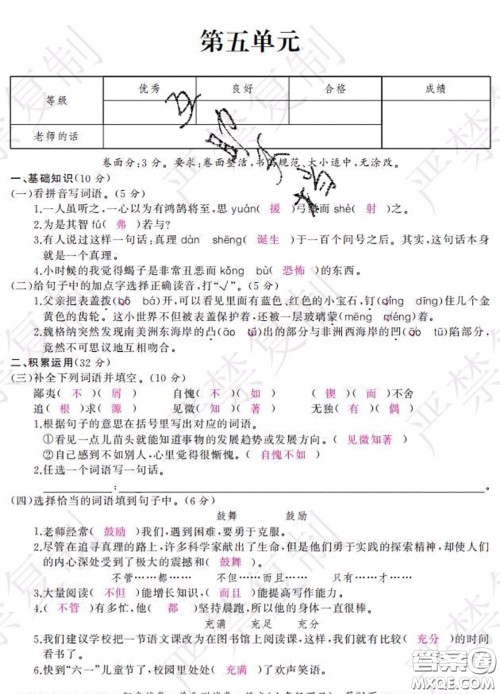 第五单元
等级 优秀 良好 合格 成绩
老师的话
卷面分:3分。要求:卷面整洁,书写规范、大小适中,无涂改。
一、基础知识(10分)
(一)看拼音写词语。(5分)
1.一人虽听之,一心以为有鸿鹄将至,思yuán( 援 )弓缴而shè( 射 )之。
2.为是其智fú( 弗 )若与?
3.有人说过这样一句话:真理dàn shēng( 诞生 )于一百个问号之后。其实,这句话本身
就是一个真理。
4.小时候的我觉得蝎子是非常丑恶而kǒng bù( 恐怖 )的东西。
(二)给句子中的加点字选择正确读音,打“√”。(5分)
1.父亲把表盖拨( bō bá)开,可以看见里面有蓝色、红色的小宝石,钉(qīng dīng)住几个金
黄色的齿轮。这小世界不但被表盖保护着,还被一层玻璃蒙(méng mēng)着。
2.魏格纳突然发现南美洲东海岸的凸( tū)出的部分与非洲西海岸的凹( āo)陷部分,
竟然不可思议地互相吻合。
二、积累运用(32分)
(三)补全下列词语并填空。(10分)
鄙夷( 不 )( 屑 ) 自愧( 不 )( 如 ) ( 锲 )( 而 )不舍
追( 根 )求( 源 ) 见微( 知 )( 著 ) 无独( 有 )( 偶 )
1.根据句子的意思在括号里写出对应的词语。
①看见一点儿苗头就能知道事物的发展趋势或发展方向。( 见微知著 )
②自己感到不如别人,心里觉得很惭愧。( 自愧不如 )
2.任选一个词语写一句话。
(四)选择恰当的词语填到句子中。(6分)
鼓舞 鼓励
1.老师经常( 鼓励 )我们,遇到困难,要勇于克服。
2.尽管在追寻真理的路上,许多科学家献出了生命,但是他们勇于实践的探索精神,却使人们的
内心深处受到了极大的震撼和( 鼓舞 )。
不管……都…… 不但……而且…… 只有……才……
3.大量阅读( 不但 )能增长知识,( 而且 )能提高写作能力。
4.( 不管 )有多忙,他( 都 )坚持晨跑,所以他的身体非常好。
充满 充足 充分
5.我们建议学校把一节语文课改为在图书馆上阅读课,这样,我们就有比较( 充分 )的时间
看书了。
6.快到“六一”儿童节了,校园里处处( 充满 )了欢声笑语。
严禁复制
答案圈